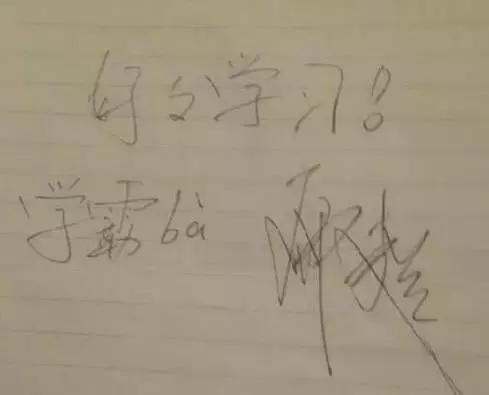 好好学习!
学霸bà